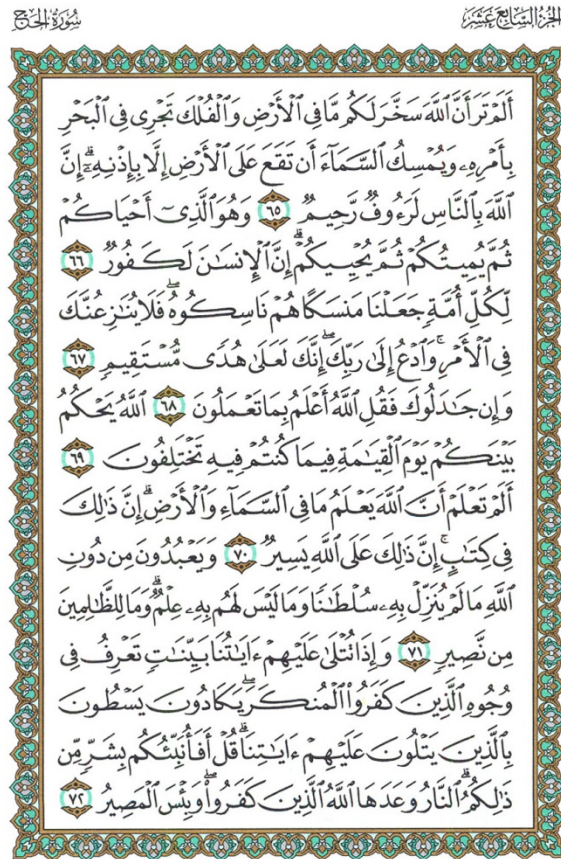 الجزء السابع عشر
سورة الحج
أَلَمْ تَرَ أَنَّ ٱللَّهَ سَخَّرَ لَكُم مَّا فِى ٱلْأَرْضِ وَٱلْفُلْكَ تَجْرِى فِى ٱلْبَحْرِ
بِأَمْرِهِۦ وَيُمْسِكُ ٱلسَّمَآءَ أَن تَقَعَ عَلَى ٱلْأَرْضِ إِلَّا بِإِذْنِهِۦٓ ۗ إِنَّ
ٱللَّهَ بِٱلنَّاسِ لَرَءُوفٌ رَّحِيمٌ ٦٥ وَهُوَ ٱلَّذِىٓ أَحْيَاكُمْ
ثُمَّ يُمِيتُكُمْ ثُمَّ يُحْيِيكُمْ ۗ إِنَّ ٱلْإِنسَـٰنَ لَكَفُورٌ ٦٦
لِّكُلِّ أُمَّةٍ جَعَلْنَا مَنسَكًا هُمْ نَاسِكُوهُ ۖ فَلَا يُنَـٰزِعُنَّكَ
فِى ٱلْأَمْرِ ۚ وَٱدْعُ إِلَىٰ رَبِّكَ ۖ إِنَّكَ لَعَلَىٰ هُدًى مُّسْتَقِيمٍ ٦٧
وَإِن جَـٰدَلُوكَ فَقُلِ ٱللَّهُ أَعْلَمُ بِمَا تَعْمَلُونَ ٦٨ ٱللَّهُ يَحْكُمُ
بَيْنَكُمْ يَوْمَ ٱلْقِيَـٰمَةِ فِيمَا كُنتُمْ فِيهِ تَخْتَلِفُونَ ٦٩
أَلَمْ تَعْلَمْ أَنَّ ٱللَّهَ يَعْلَمُ مَا فِى ٱلسَّمَآءِ وَٱلْأَرْضِ ۗ إِنَّ ذَٰلِكَ
فِى كِتَـٰبٍ ۚ إِنَّ ذَٰلِكَ عَلَى ٱللَّهِ يَسِيرٌ ٧٠ وَيَعْبُدُونَ مِن دُونِ
ٱللَّهِ مَا لَمْ يُنَزِّلْ بِهِۦ سُلْطَـٰنًا وَمَا لَيْسَ لَهُم بِهِۦ عِلْمٌ ۗ وَمَا لِلظَّـٰلِمِينَ
مِن نَّصِيرٍ ٧١ وَإِذَا تُتْلَىٰ عَلَيْهِمْ ءَايَـٰتُنَا بَيِّنَـٰتٍ تَعْرِفُ فِى
وُجُوهِ ٱلَّذِينَ كَفَرُوا۟ ٱلْمُنكَرَ ۖ يَكَادُونَ يَسْطُونَ
بِٱلَّذِينَ يَتْلُونَ عَلَيْهِمْ ءَايَـٰتِنَا ۗ قُلْ أَفَأُنَبِّئُكُم بِشَرٍّ مِّن
ذَٰلِكُمُ ۗ ٱلنَّارُ وَعَدَهَا ٱللَّهُ ٱلَّذِينَ كَفَرُوا۟ ۖ وَبِئْسَ ٱلْمَصِيرُ ٧٢